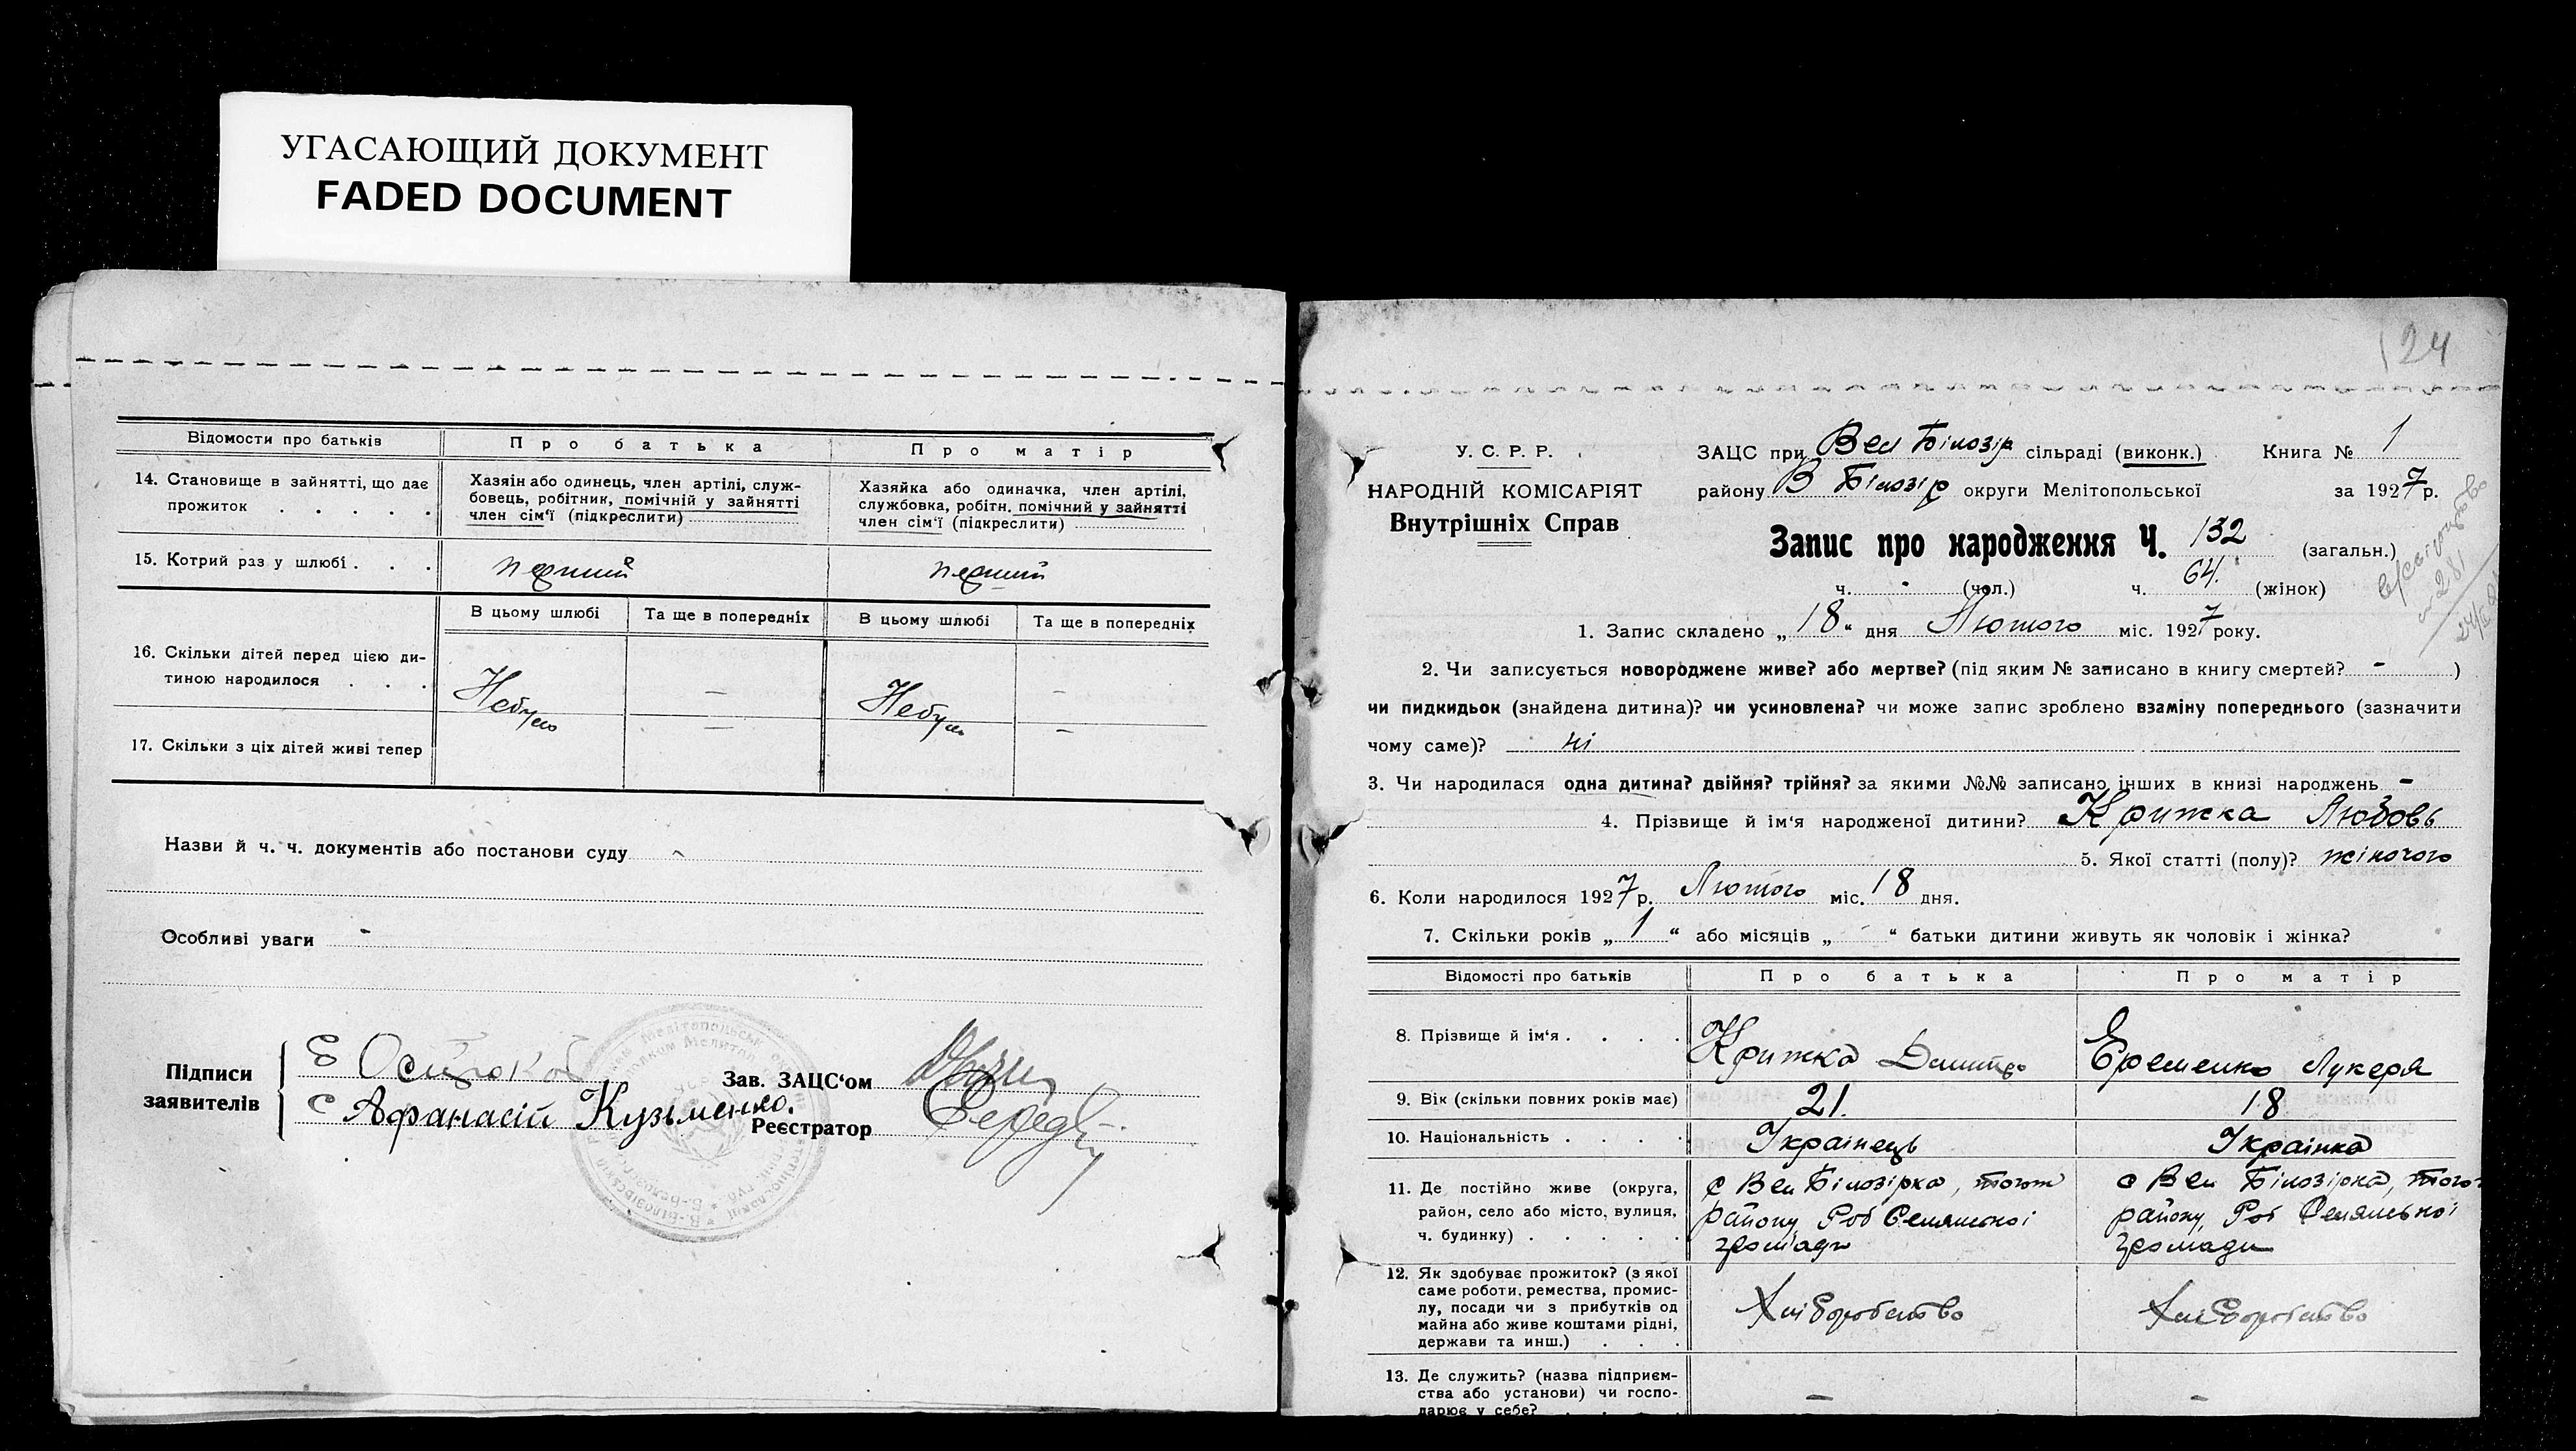 УГАСАЮЩИЙ ДОКУМЕНТ
FADED DOCUMENT
Відомости про батьків
Про батька
Про матір
14. Становище в зайнятті, що дає
прожиток . . . . .
Хазяін або одинець, член артілі, служ-
бовець, робітник, помічній у зайнятті
член сім'ї (підкреслити)
Хазяйка або одиначка, член артілі,
службовка, робітн. помічний у зайнятті
член сім'ї (підкреслити)
15. Котрий раз у шлюбі . . .
перший
перший
В цьому шлюбі
Та ще в попередніх
В цьому шлюбі
Та ще в попередніх
16. Скільки дітей перед цією ди-
тиною народилося . . .
Небуло
—
Небуло
—
17. Скільки з ціх дітей живі тепер
—
—
Назви й ч. ч. документів або постанови суду
Особливі уваги -
Підписи
заявителів
Афанасій Кузьменко.
Зав. ЗАЦС'ом
Реєстратор
124
У. С. Р. Р.
НАРОДНІЙ КОМІСАРІЯТ
Внутрішніх Справ
ЗАЦС при Вел Білозір сільраді (виконк.) Книга № 1
району В Білозір округи Мелітопольської за 1927 р.
Запис про народження Ч. 132 (загальн.)
ч. - (чол.) ч. 64. (жінок)
1. Запис складено „18" дня Лютого міс. 1927 року.
2. Чи записується новороджене живе? або мертве? (під яким № записано в книгу смертей? - )
чи пидкидьок (знайдена дитина)? чи усиновлена? чи може запис зроблено взаміну попереднього (зазначити
чому саме)? ні
3. Чи народилася одна дитина? двійня? трійня? за якими №№ записано інших в книзі народжень -
4. Прізвище й ім'я народженої дитини? Крижка Любовь
5. Якої статті (полу)? жіночого
6. Коли народилося 1927 р. Лютого міс. 18 дня.
7. Скільки років „1" або місяців „-" батьки дитини живуть як чоловік і жінка?
Відомості про батьків
Про батька
Про матір
8. Прізвище й ім'я . . . .
Крижка Дмитро
Еременко Лукеря
9. Вік (скільки повних років має)
21.
18
10. Національність . . . .
Українець
Українка
11. Де постійно живе (округа,
район, село або місто, вулиця,
ч. будинку) . . . . .
с Вел Білозірка, того ж
району,
громади
с Вел Білозірка, того
району,
громади
12. Як здобуває прожиток? (з якої
саме роботи, ремества, промис-
лу, посади чи з прибутків од
майна або живе коштами рідні,
держави та инш.) . . .
Хліборобство
Хліборобство
13. Де служить? (назва підприєм-
ства або установи) чи госпо-
дарює у себе? . . . .
—
—